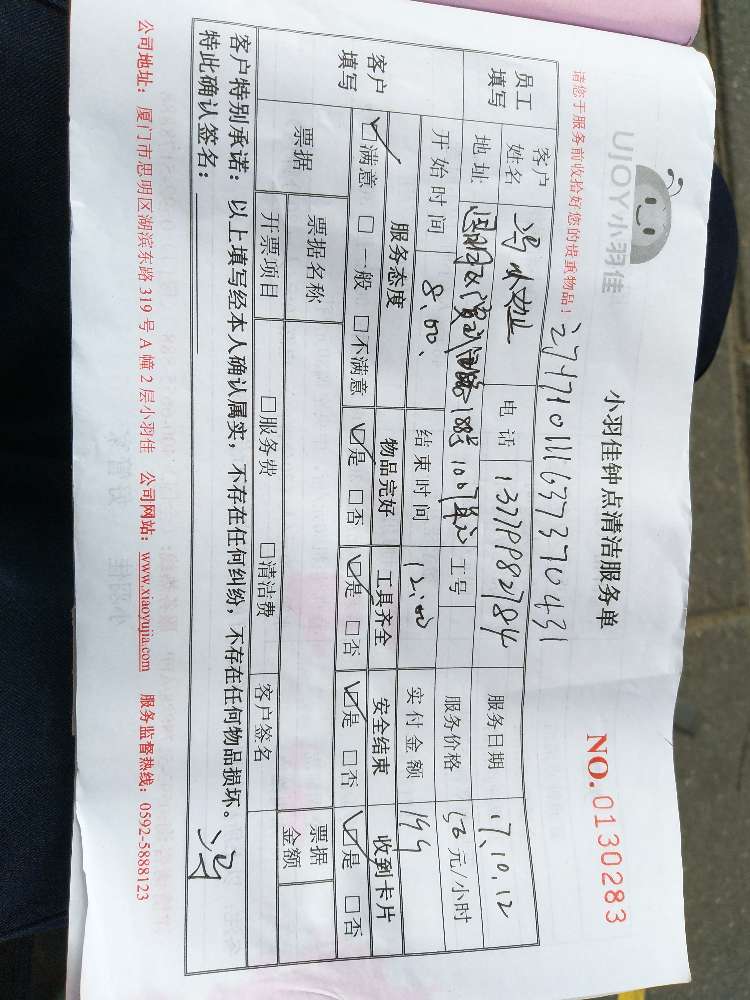 UJOY小羽佳
小羽佳钟点清洁服务单
NO.0130283
请您于服务前收拾好您的贵重物品！
员工填写 客户姓名 冯 电话 13779982784 服务日期 17.10.12
地址 188号 工号 服务价格 元/小时
客户填写 开始时间 8.00. 结束时间 12:00 实付金额
服务态度 物品完好 工具齐全 安全结束 收到卡片
☑满意 □一般 □不满意 ☑是 □否 ☑是 □否 ☑是 □否 ☑是 □否
票据 票据名称 票据金额
开票项目 □服务费 □清洁费 客户签名
客户特别承诺：以上填写经本人确认属实，不存在任何纠纷，不存在任何物品损坏。
特此确认签名： 冯
公司地址：厦门市思明区湖滨东路319号A幢2层小羽佳 公司网站：www.xiaoyujia.com 服务监督热线：0592-5888123